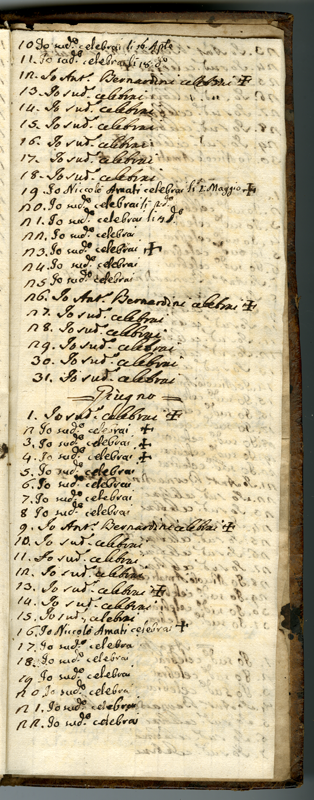 10. Io sud.º celebrai li 16 Aple
11. Io sud.º celebrai li 18 do
12. Io Ant.º Bernardini celebrai ✠
13. Io sud.º celebrai
14. Io sud.º celebrai
15. Io sud.º celebrai
16. Io sud.º celebrai
17. Io sud.º celebrai
18. Io sud.º celebrai
19. Io Niccolò Amati celebrai li 1. Maggio ✠
20. Io sud.º celebrai li 2. do
21. Io sud.º celebrai li do
22. Io sud.º celebrai
23. Io sud.º celebrai ✠
24. Io sud.º celebrai
25 Io sud.º celebrai
26. Io Ant.º Bernardini celebrai ✠
27. Io sud.º celebrai
28. Io sud.º celebrai
29. Io sud.º celebrai
30. Io sud.º celebrai
31. Io sud.º celebrai
Giugno
1. Io sud.º celebrai ✠
2 Io sud.º celebrai ✠
3. Io sud.º celebrai ✠
4. Io sud.º celebrai ✠
5. Io sud.º celebrai
6. Io sud.º celebrai
7. Io sud.º celebrai
8 Io sud.º celebrai
9. Io Ant.º Bernardini celebrai ✠
10. Io sud.º celebrai
11. Io sud.º celebrai
12. Io sud.º celebrai
13. Io sud.º celebrai ✠
14. Io sud.º celebrai
15. Io sud.º celebrai
16. Io Niccolò Amati celebrai ✠
17. Io sud.º celebra
18. Io sud.º celebra
19 Io sud.º celebra
20 Io sud.º celebra
21. Io sud.º celebra
22. Io sud.º celebra